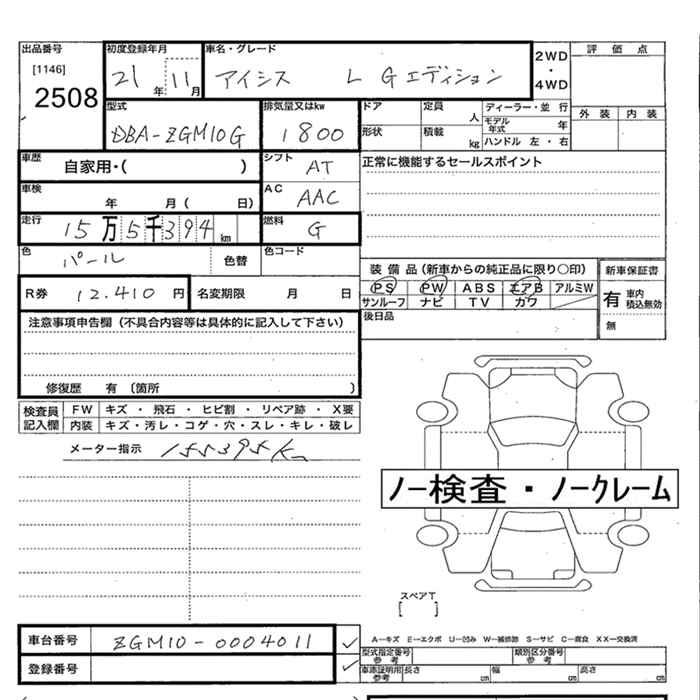 出品番号 初度登録年月 車名・グレード 2WD・4WD 評価点
[1146] 2508 21年 11月 アイシス L Gエディション
外装 内装
型式 排気量又はkw ドア 定員 人 ディーラー・並行
DBA-ZGM10G 1800 形状 積載 kg モデル年式 年
ハンドル 左・右
車歴 自家用・( ) シフト AT 正常に機能するセールスポイント
車検 年 月( 日) AC AAC
走行 15万5千394km 燃料 G
色 パール 色替 色コード
装備品(新車からの純正品に限り○印) 新車保証書
PS PW ABS エアB アルミW 有 車内積込無効
サンルーフ ナビ TV カワ 無
R券 12,410円 名変期限 月 日 後日品
注意事項申告欄(不具合内容等は具体的に記入して下さい)
修復歴 有〔箇所 )
検査員記入欄 FW キズ・飛石・ヒビ割・リペア跡・X要
内装 キズ・汚レ・コゲ・穴・スレ・キレ・破レ
メーター指示 155395Km
ノー検査・ノークレーム
スペアT
[ ]
車台番号 ZGM10-0004011
A-キズ E-エクボ U-凹み W-補修跡 S-サビ C-腐食 XX-交換済
型式指定番号 参考 類別区分番号 参考
登録番号
車庫証明用 参考 長さ cm 幅 cm 高さ cm